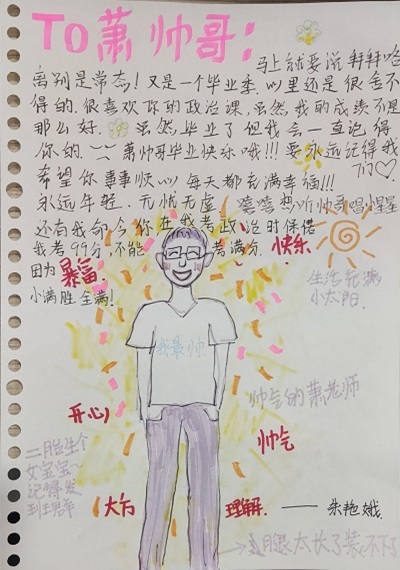 To 萧帅哥:
马上就要说拜拜啦
离别是常态!又是一个毕业季.心里还是很舍不
得的.很喜欢你的政治课,虽然我的成绩不是
那么好.虽然毕业了但我会一直记得
你的. 萧帅哥毕业快乐哦!!!要永远记得我
们♡
希望你事事顺心 每天都充满幸福!!!
永远年轻.无忧无虑 嘻嘻 想听帅哥唱惺惺
还有我命令你在我考政治时保偌
我考99分,不能考满分.
因为
小满胜全满!
暴富
快乐
生活充满
小太阳.
我最帅
帅气的萧老师
开心
帅气
二胎生个
女宝宝~
记得发
到班群
大方
理解.
—— 朱艳娥.
→ 腿太长了装不下了